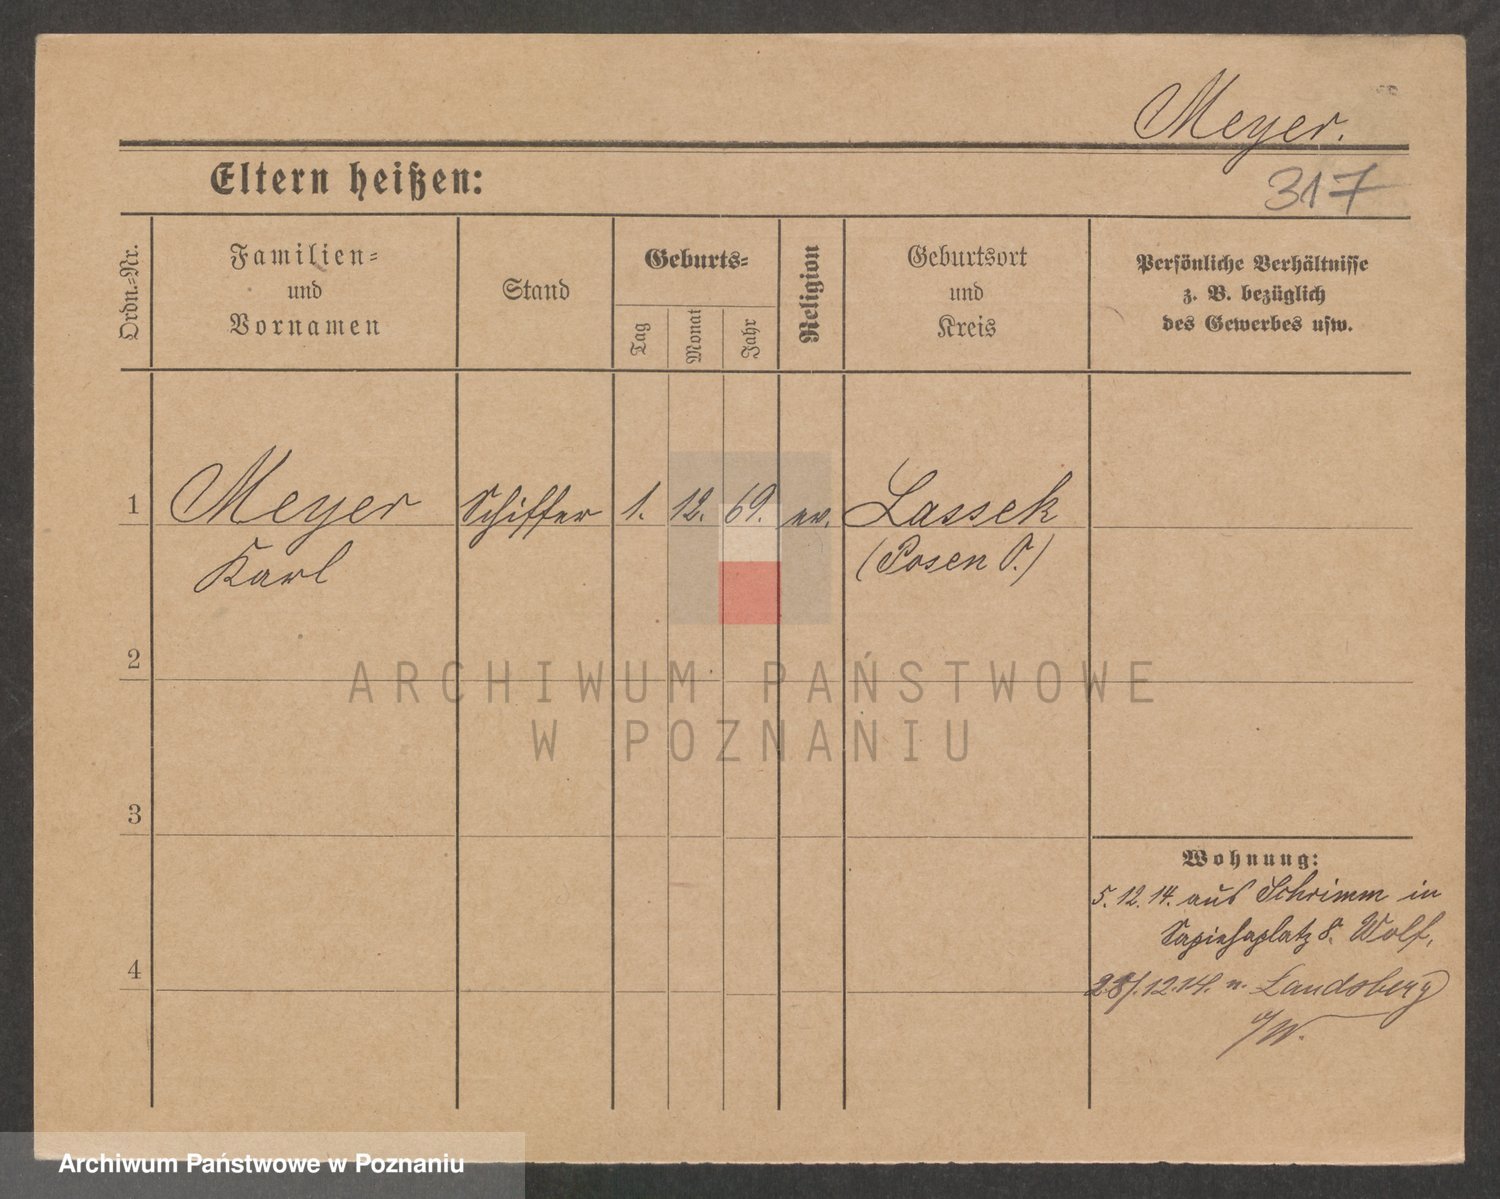 Meyer.
Eltern heißen:
317
Ordn.-Nr.
Familien-
und
Vornamen
Stand
Geburts-
Tag
Monat
Jahr
Religion
Geburtsort
und
Kreis
Persönliche Verhältnisse
z. B. bezüglich
des Gewerbes usw.
1 Meyer Schiffer 1. 12. 69. ev. Lassek
Karl (Posen O.)
2
ARCHIWUM PAŃSTWOWE
W POZNANIU
3
Wohnung:
5.12.14. aus Schrimm in
Sapiehaplatz 8. Wolf,
4
28/.12.14. n. Landsberg
a/W.
Archiwum Państwowe w Poznaniu